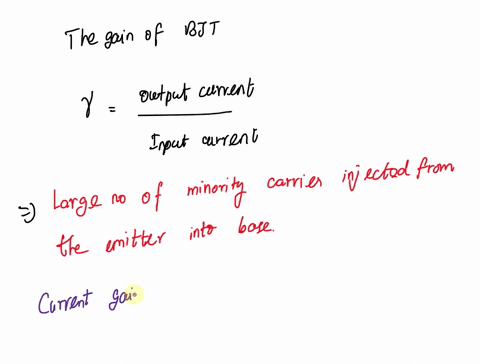 The gain of BJT
γ = output current
Input current
⇒ Large no of minority carrier injected from
the emitter into base.
Current gai